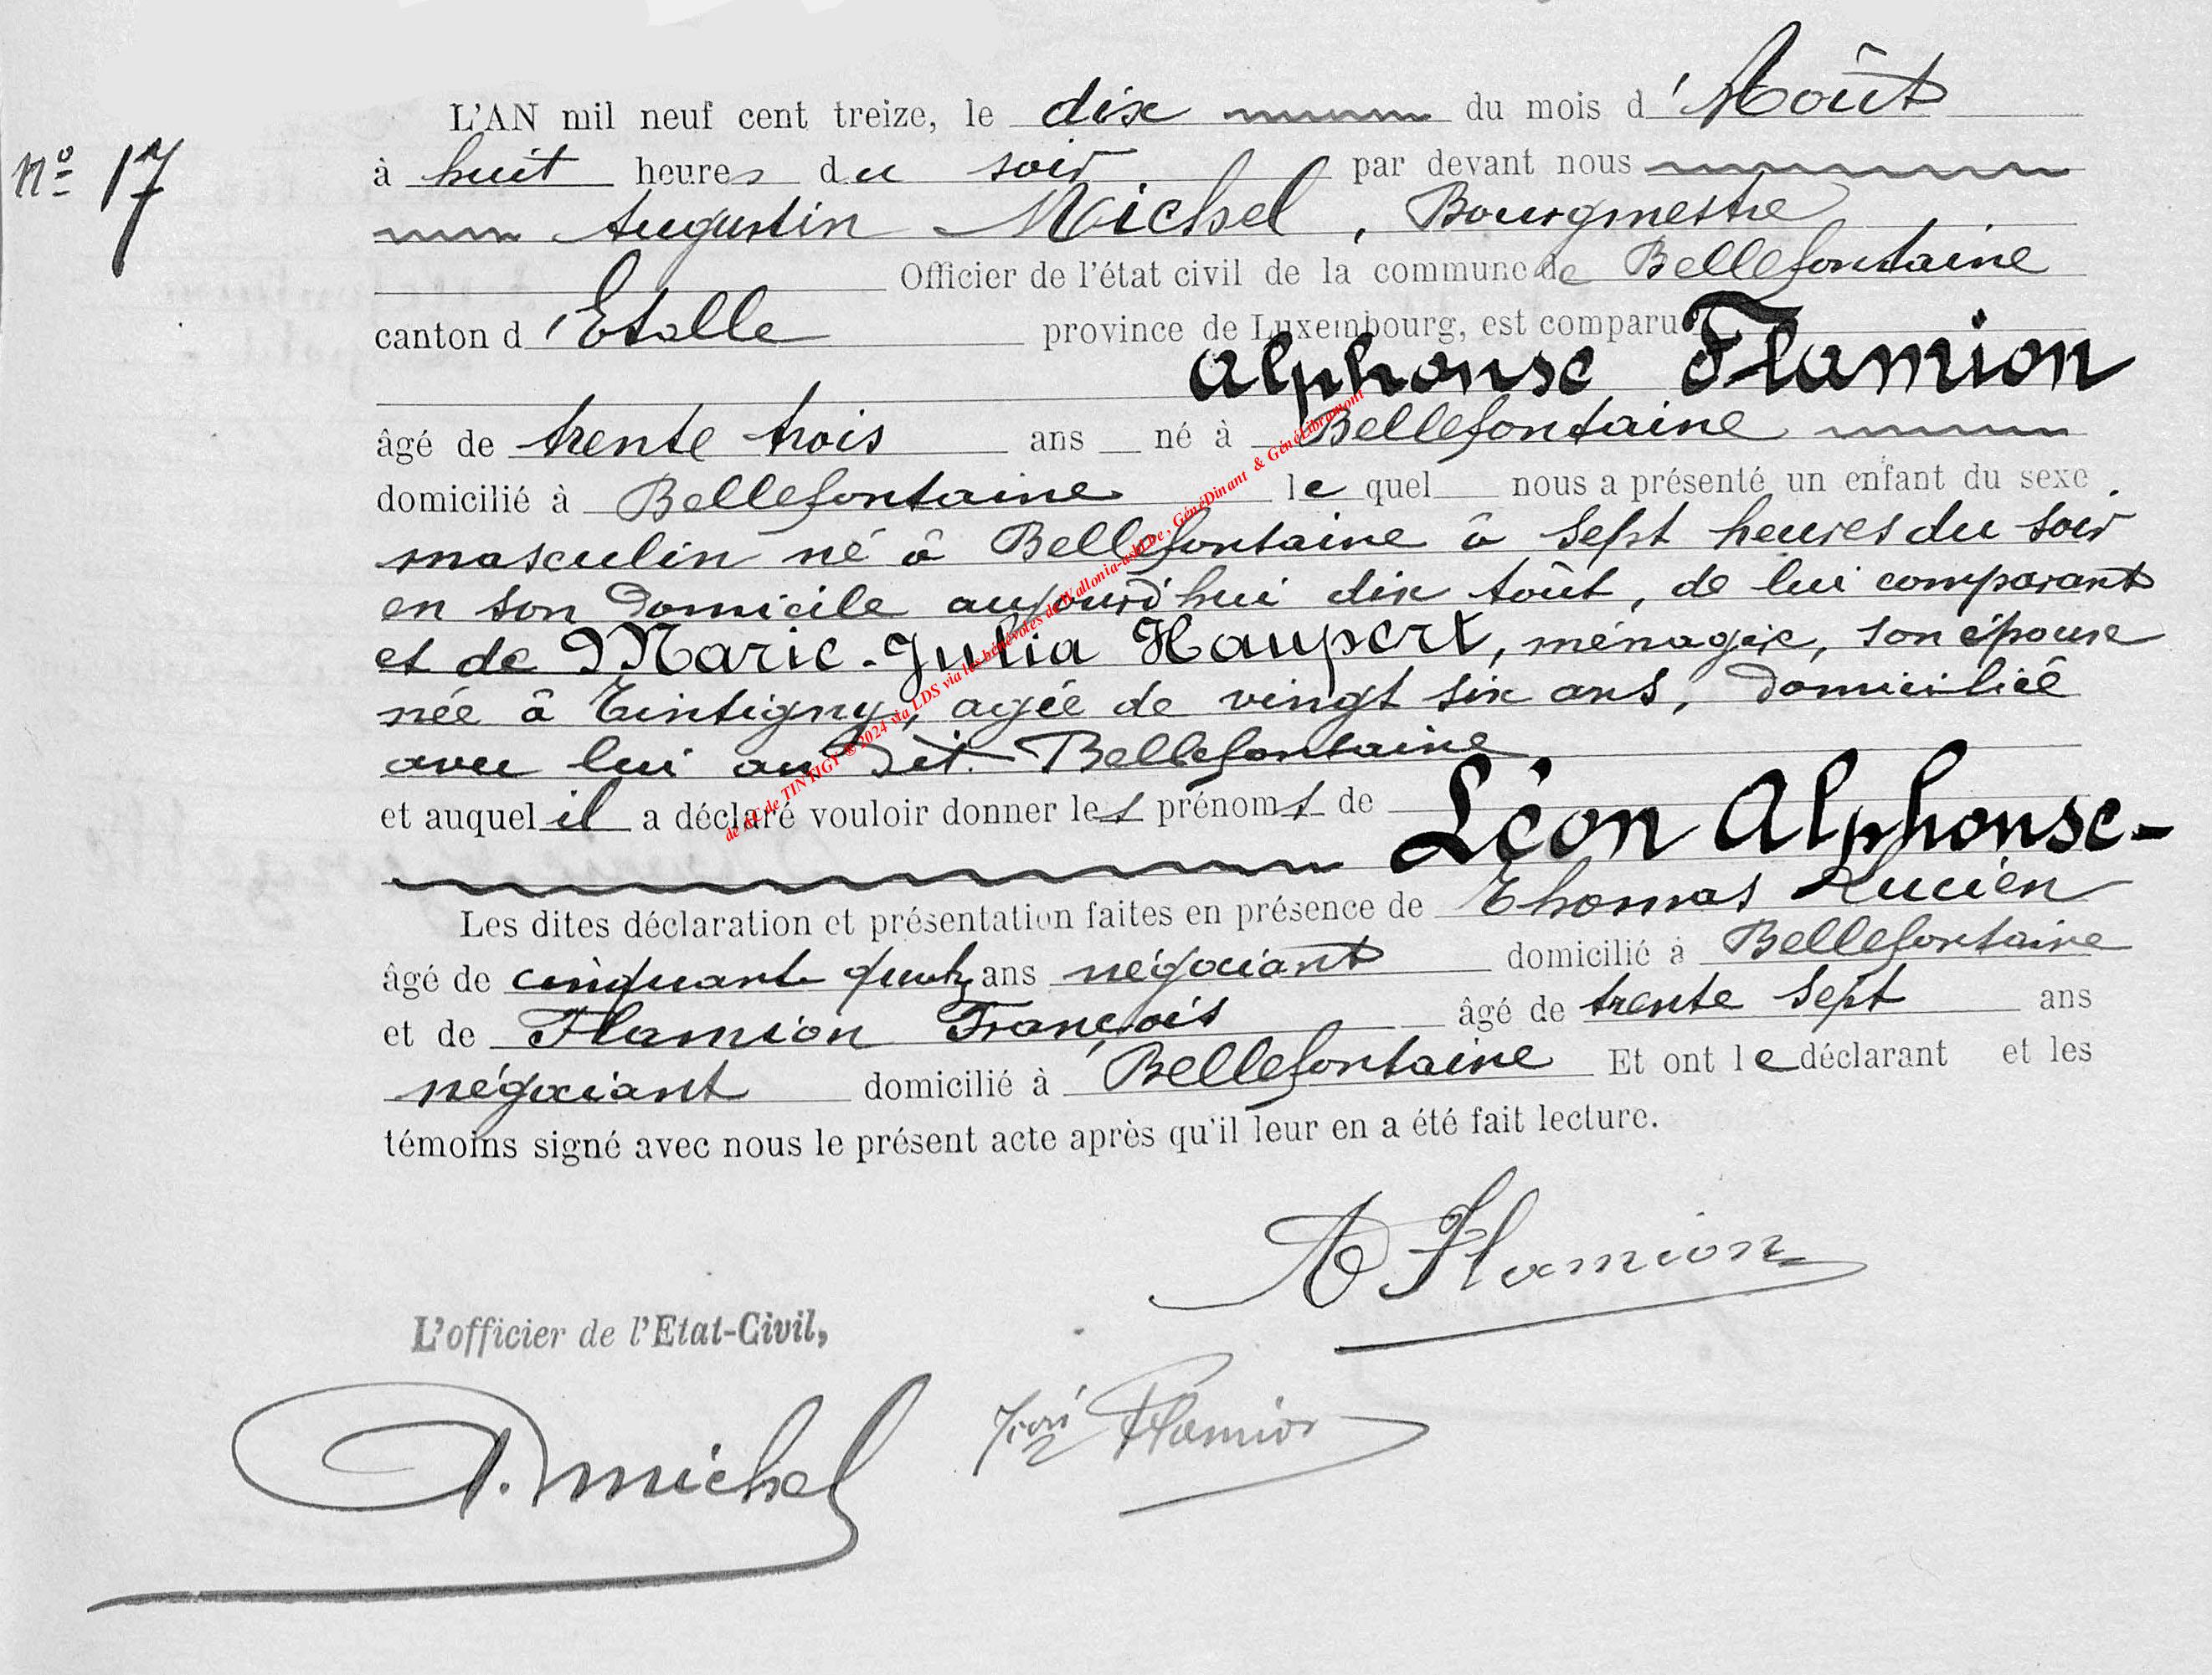 L'AN mil neuf cent treize, le dix du mois d'Août
N° 17
à huit heures du soir par devant nous
Augustin Michel, Bourgmestre
Officier de l'état civil de la commune de Bellefontaine
canton d'Etalle province de Luxembourg, est comparu
Alphonse Flamion
âgé de trente trois ans né à Bellefontaine
domicilié à Bellefontaine lequel nous a présenté un enfant du sexe
masculin né à Bellefontaine à sept heures du soir
en son domicile aujourd'hui dix Août, de lui comparant
et de Marie-Julia Haupert, ménagère, son épouse
née à Tintigny, agée de vingt six ans, domiciliée
avec lui au dit Bellefontaine
et auquel il a déclaré vouloir donner les prénoms de
Léon Alphonse-
Les dites déclaration et présentation faites en présence de Thomas Lucien
âgé de cinquante quatre ans négociant domicilié à Bellefontaine
et de Flamion François âgé de trente sept ans
négociant domicilié à Bellefontaine Et ont le déclarant et les
témoins signé avec nous le présent acte après qu'il leur en a été fait lecture.
A Flamion
L'officier de l'Etat-Civil,
Flamion
A. Michel
de AC de TINTIGY © 2024 via LDS via les bénévoles de Wallonia-asbl.be, GénéDinant & GénéLibramont